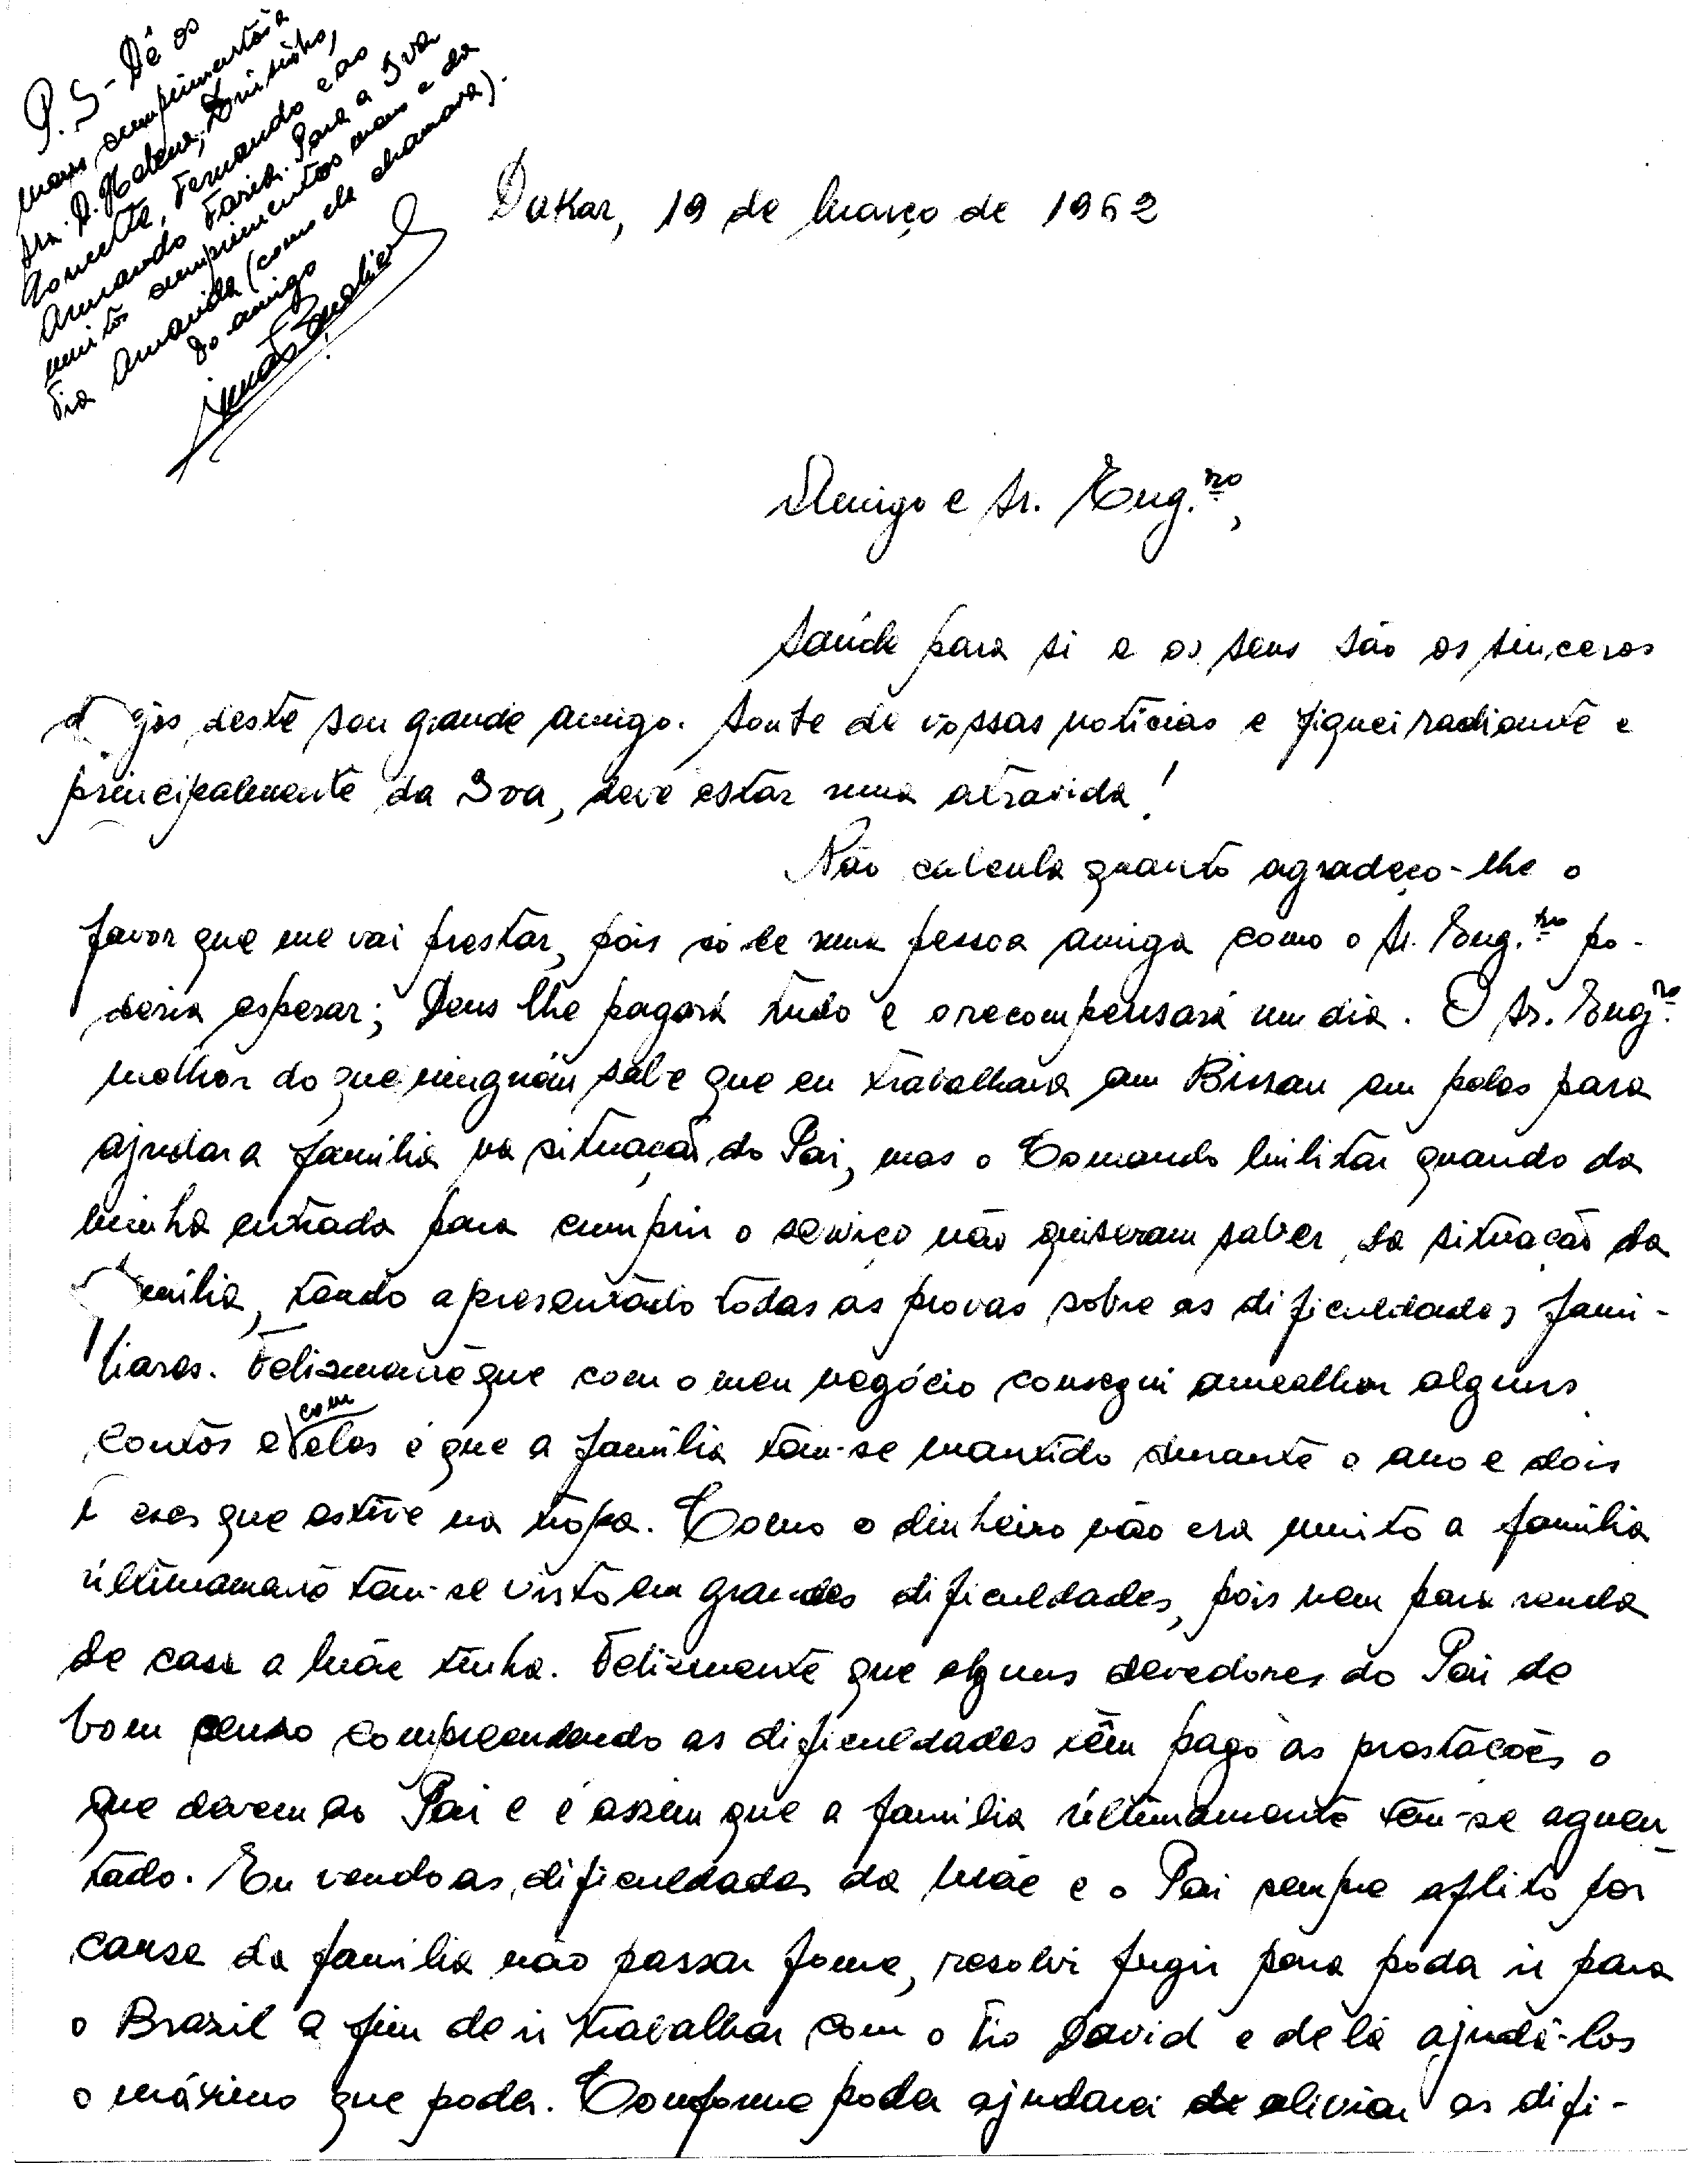 P.S - Dê os
meus cumprimentos à
Sra. D. Helena,
Fernando e ao
Armando Farid. Para a Iva
muitos cumprimentos meus e da
tia Amavida (como ela chamava).
Do amigo
Dakar, 19 de Março de 1962
Amigo e Sr. Eng.ro,
Saúde para si e os seus são os sinceros
deste seu grande amigo. Soube de vossas notícias e fiquei radiante e
principalmente da Iva, deve estar uma atravida!
Não calcula quanto agradeço-lhe o
favor que me vai prestar, pois só de uma pessoa amiga como o Sr. Eng.ro po-
deria esperar; Deus lhe pagará tudo e o recompensará um dia. O Sr. Eng.ro
melhor do que ninguém sabe que eu trabalhava em Bissau em pelos para
ajudar a família na situação do Pai, mas o Comando Militar quando da
minha entrada para cumprir o serviço não quiseram saber da situação da
família, tendo apresentado todas as provas sobre as dificuldades fami-
liares. Felizmente que com o meu negócio consegui amealhar alguns
contos e com elas é que a família tem-se mantido durante o ano e dois
meses que estive na tropa. Como o dinheiro não era muito a família
últimamente tem-se visto em grandes dificuldades, pois nem para renda
de casa a Mãe tinha. Felizmente que alguns devedores do Pai de
bom censo compreendendo as dificuldades têm pago às prestações o
que devem ao Pai e é assim que a família últimamente tem-se aguen-
tado. Eu vendo as dificuldades da Mãe e o Pai sempre aflito por
causa da família não passar fome, resolvi fugir para poder ir para
o Brazil a fim de ir trabalhar com o tio David e de lá ajudá-los
o máximo que poder. Conforme poder ajudarei de aliviar as difi-